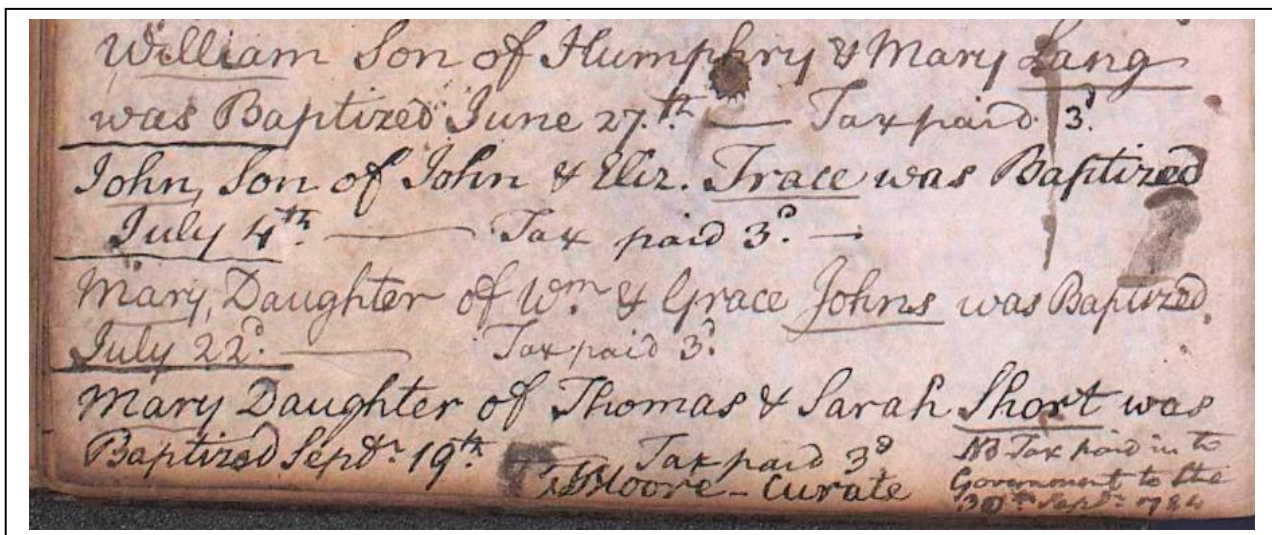 William Son of Humphry & Mary Lang
was Baptized June 27.th — Tax paid 3.d
John, Son of John & Eliz. Trace was Baptized
July 4th. — Tax paid 3.d —
Mary, Daughter of Wm. & Grace Johns was Baptized,
July 22d. — Tax paid 3.d
Mary Daughter of Thomas & Sarah Short was
Baptized Sepr. 19th. — Tax paid 3d
Moore - Curate
NB Tax paid in to
Government to the
30th Sepr. 1784